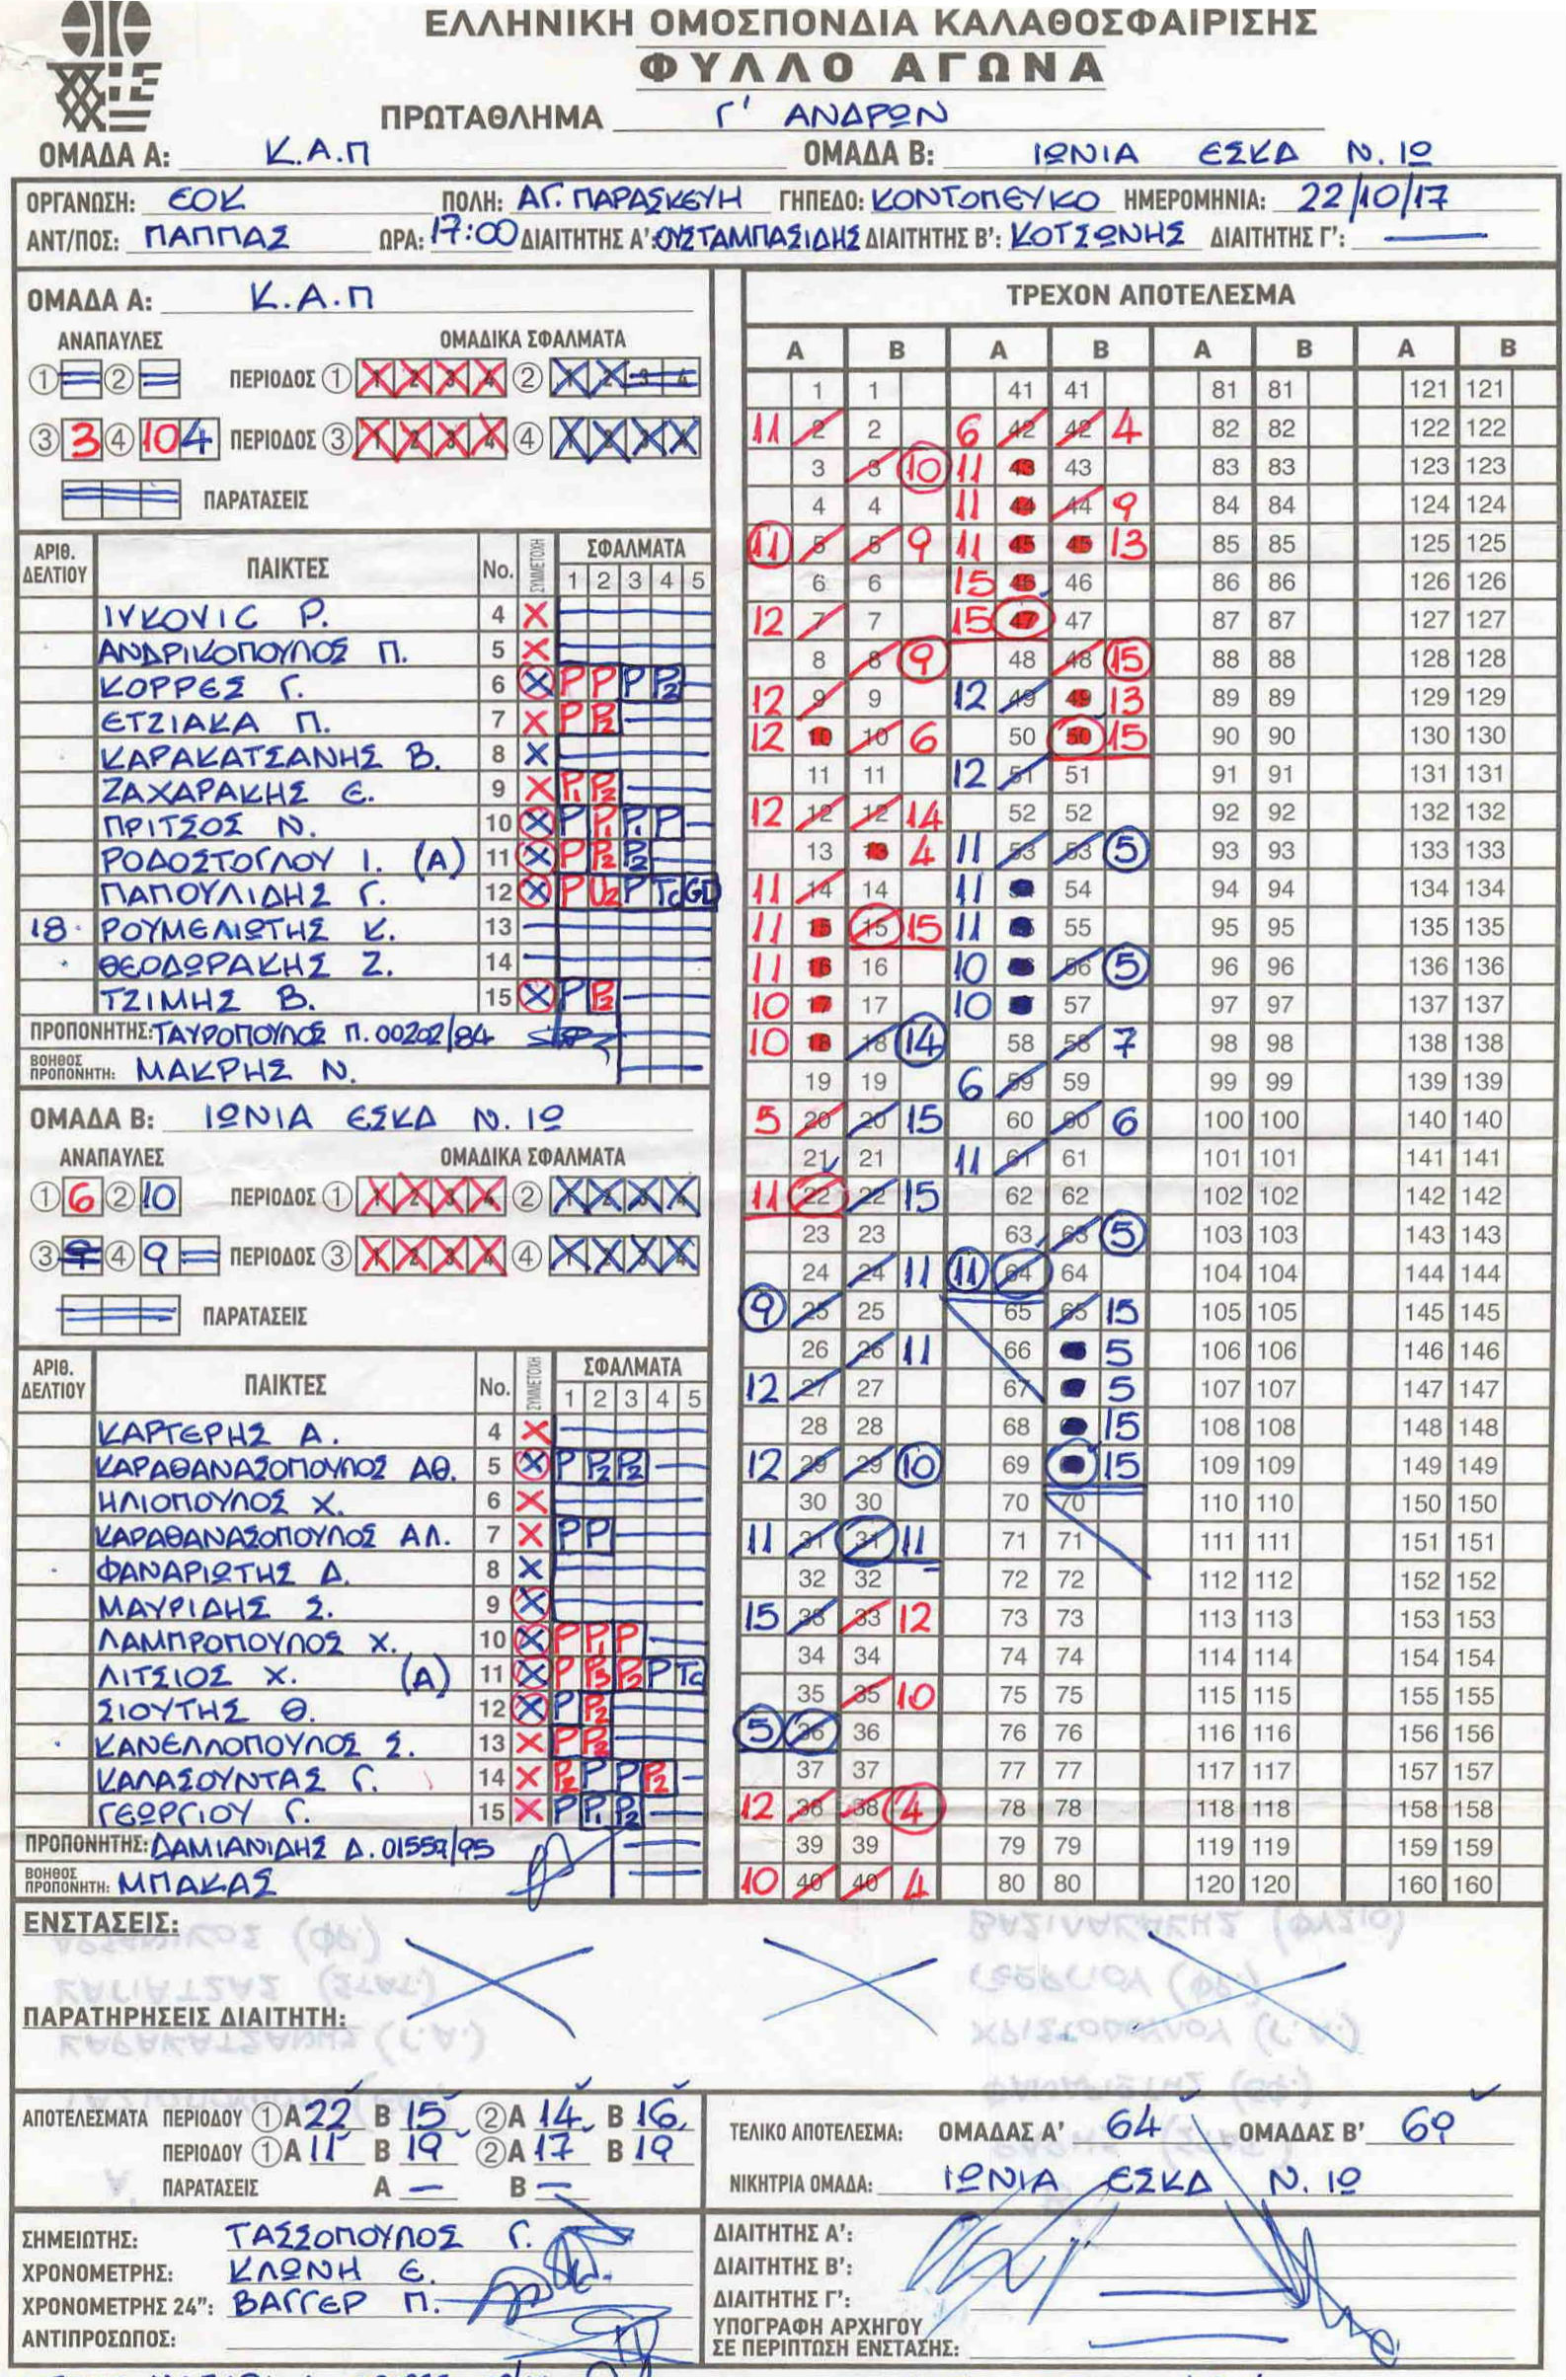 ΕΛΛΗΝΙΚΗ ΟΜΟΣΠΟΝΔΙΑ ΚΑΛΑΘΟΣΦΑΙΡΙΣΗΣ
ΦΥΛΛΟ ΑΓΩΝΑ
ΠΡΩΤΑΘΛΗΜΑ Γ' ΑΝΔΡΩΝ
ΟΜΑΔΑ Α: Κ.Α.Π ΟΜΑΔΑ Β: ΙΩΝΙΑ ΕΣΚΔ Ν. ΙΩ
ΟΡΓΑΝΩΣΗ: ΕΟΚ ΠΟΛΗ: ΑΓ. ΠΑΡΑΣΚΕΥΗ ΓΗΠΕΔΟ: ΚΟΝΤΟΠΕΥΚΟ ΗΜΕΡΟΜΗΝΙΑ: 22/10/17
ΑΝΤ/ΠΟΣ: ΠΑΠΠΑΣ ΩΡΑ: 17:00 ΔΙΑΙΤΗΤΗΣ Α': ΟΥΣΤΑΜΠΑΣΙΔΗΣ ΔΙΑΙΤΗΤΗΣ Β': ΚΟΤΣΩΝΗΣ ΔΙΑΙΤΗΤΗΣ Γ':
ΟΜΑΔΑ Α: Κ.Α.Π
ΑΝΑΠΑΥΛΕΣ ΟΜΑΔΙΚΑ ΣΦΑΛΜΑΤΑ
① ② ΠΕΡΙΟΔΟΣ ① 1 2 3 4 ② 1 2 3 4
③ 3 ④ 10 4 ΠΕΡΙΟΔΟΣ ③ 1 2 3 4 ④ 1 2 3 4
ΠΑΡΑΤΑΣΕΙΣ
ΑΡΙΘ. ΔΕΛΤΙΟΥ ΠΑΙΚΤΕΣ No. ΣΥΜΜΕΤΟΧΗ ΣΦΑΛΜΑΤΑ
1 2 3 4 5
IVKOVIC P. 4 X
ΑΝΔΡΙΚΟΠΟΥΛΟΣ Π. 5 X
ΚΟΡΡΕΣ Γ. 6 X P P P P2
ΕΤΖΙΑΚΑ Π. 7 X P P2
ΚΑΡΑΚΑΤΣΑΝΗΣ Β. 8 X
ΖΑΧΑΡΑΚΗΣ Ε. 9 X P1 P2
ΠΡΙΤΣΟΣ Ν. 10 X P P1 P1 P
ΡΟΔΟΣΤΟΓΛΟΥ Ι. (Α) 11 X P P2 P2
ΠΑΠΟΥΛΙΔΗΣ Γ. 12 X P U2 P Tc GD
18 ΡΟΥΜΕΛΙΩΤΗΣ Κ. 13
ΘΕΟΔΩΡΑΚΗΣ Ζ. 14
ΤΖΙΜΗΣ Β. 15 X P P2
ΠΡΟΠΟΝΗΤΗΣ: ΤΑΥΡΟΠΟΥΛΟΣ Π. 00202/84
ΒΟΗΘΟΣ ΠΡΟΠΟΝΗΤΗ: ΜΑΚΡΗΣ Ν.
ΟΜΑΔΑ Β: ΙΩΝΙΑ ΕΣΚΔ Ν. ΙΩ
ΑΝΑΠΑΥΛΕΣ ΟΜΑΔΙΚΑ ΣΦΑΛΜΑΤΑ
① 6 ② 10 ΠΕΡΙΟΔΟΣ ① 1 2 3 4 ② 1 2 3 4
③ ④ 9 ΠΕΡΙΟΔΟΣ ③ 1 2 3 4 ④ 1 2 3 4
ΠΑΡΑΤΑΣΕΙΣ
ΑΡΙΘ. ΔΕΛΤΙΟΥ ΠΑΙΚΤΕΣ No. ΣΥΜΜΕΤΟΧΗ ΣΦΑΛΜΑΤΑ
1 2 3 4 5
ΚΑΡΤΕΡΗΣ Α. 4 X
ΚΑΡΑΘΑΝΑΣΟΠΟΥΛΟΣ ΑΘ. 5 X P P2 P2
ΗΛΙΟΠΟΥΛΟΣ Χ. 6 X
ΚΑΡΑΘΑΝΑΣΟΠΟΥΛΟΣ ΑΛ. 7 X P P
ΦΑΝΑΡΙΩΤΗΣ Δ. 8 X
ΜΑΥΡΙΔΗΣ Σ. 9 X
ΛΑΜΠΡΟΠΟΥΛΟΣ Χ. 10 X P P1 P
ΛΙΤΣΙΟΣ Χ. (Α) 11 X P P3 P2 P Tc
ΣΙΟΥΤΗΣ Θ. 12 X P P2
ΚΑΝΕΛΛΟΠΟΥΛΟΣ Σ. 13 X P P2
ΚΑΛΑΣΟΥΝΤΑΣ Γ. 14 X P2 P P P2
ΓΕΩΡΓΙΟΥ Γ. 15 X P P1 P2
ΠΡΟΠΟΝΗΤΗΣ: ΔΑΜΙΑΝΙΔΗΣ Δ. 01557/95
ΒΟΗΘΟΣ ΠΡΟΠΟΝΗΤΗ: ΜΠΑΚΑΣ
ΤΡΕΧΟΝ ΑΠΟΤΕΛΕΣΜΑ
Α Β Α Β Α Β Α Β
1 1 41 41 81 81 121 121
11 2 2 6 42 42 4 82 82 122 122
3 3 10 11 43 43 83 83 123 123
4 4 11 44 44 9 84 84 124 124
11 5 5 9 11 45 45 13 85 85 125 125
6 6 15 46 46 86 86 126 126
12 7 7 15 47 47 87 87 127 127
8 8 9 48 48 15 88 88 128 128
12 9 9 12 49 49 13 89 89 129 129
12 10 10 6 50 50 15 90 90 130 130
11 11 12 51 51 91 91 131 131
12 12 12 14 52 52 92 92 132 132
13 13 4 11 53 53 5 93 93 133 133
11 14 14 11 54 94 94 134 134
11 15 15 15 11 55 95 95 135 135
11 16 16 10 56 5 96 96 136 136
10 17 17 10 57 97 97 137 137
10 18 18 14 58 58 7 98 98 138 138
19 19 6 59 59 99 99 139 139
5 20 20 15 60 60 6 100 100 140 140
21 21 11 61 61 101 101 141 141
11 22 22 15 62 62 102 102 142 142
23 23 63 63 5 103 103 143 143
24 24 11 11 64 64 104 104 144 144
9 25 25 65 65 15 105 105 145 145
26 26 11 66 5 106 106 146 146
12 27 27 67 5 107 107 147 147
28 28 68 15 108 108 148 148
12 29 29 10 69 15 109 109 149 149
30 30 70 70 110 110 150 150
11 31 31 11 71 71 111 111 151 151
32 32 72 72 112 112 152 152
15 33 33 12 73 73 113 113 153 153
34 34 74 74 114 114 154 154
35 35 10 75 75 115 115 155 155
5 36 36 76 76 116 116 156 156
37 37 77 77 117 117 157 157
12 38 38 4 78 78 118 118 158 158
39 39 79 79 119 119 159 159
10 40 40 4 80 80 120 120 160 160
ΕΝΣΤΑΣΕΙΣ:
ΠΑΡΑΤΗΡΗΣΕΙΣ ΔΙΑΙΤΗΤΗ:
ΑΠΟΤΕΛΕΣΜΑΤΑ ΠΕΡΙΟΔΟΥ ① Α 22 Β 15 ② Α 14 Β 16
ΠΕΡΙΟΔΟΥ ① Α 11 Β 19 ② Α 17 Β 19
ΠΑΡΑΤΑΣΕΙΣ Α — Β —
ΤΕΛΙΚΟ ΑΠΟΤΕΛΕΣΜΑ: ΟΜΑΔΑΣ Α' 64 ΟΜΑΔΑΣ Β' 69
ΝΙΚΗΤΡΙΑ ΟΜΑΔΑ: ΙΩΝΙΑ ΕΣΚΔ Ν. ΙΩ
ΣΗΜΕΙΩΤΗΣ: ΤΑΣΣΟΠΟΥΛΟΣ Γ.
ΧΡΟΝΟΜΕΤΡΗΣ: ΚΛΩΝΗ Ε.
ΧΡΟΝΟΜΕΤΡΗΣ 24": ΒΑΓΓΕΡ Π.
ΑΝΤΙΠΡΟΣΩΠΟΣ:
ΔΙΑΙΤΗΤΗΣ Α':
ΔΙΑΙΤΗΤΗΣ Β':
ΔΙΑΙΤΗΤΗΣ Γ':
ΥΠΟΓΡΑΦΗ ΑΡΧΗΓΟΥ
ΣΕ ΠΕΡΙΠΤΩΣΗ ΕΝΣΤΑΣΗΣ: